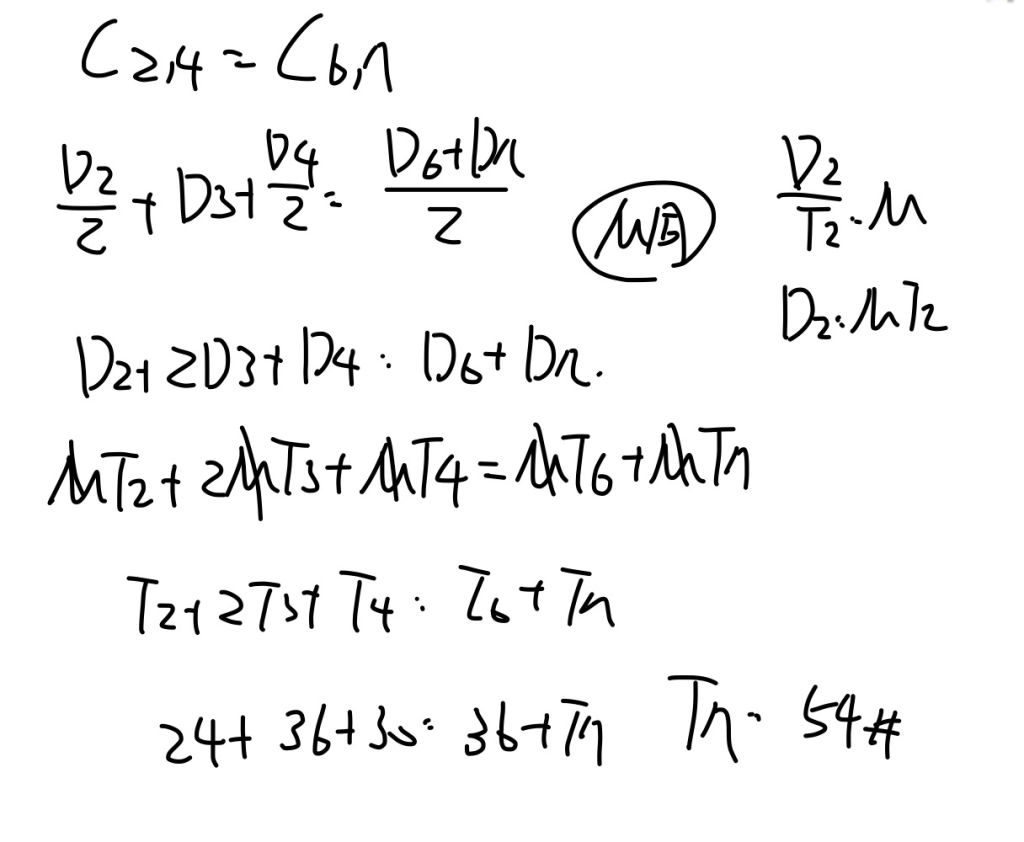 C2,4 = C6,n
D2/2 + D3 + D4/2 = (D6 + Dn)/2
M同
D2/T2 = M
D2 = MT2
D2 + 2D3 + D4 = D6 + Dn.
MT2 + 2MT3 + MT4 = MT6 + MTn
T2 + 2T3 + T4 = T6 + Tn
24 + 36 + 30 = 36 + Tn Tn = 54#